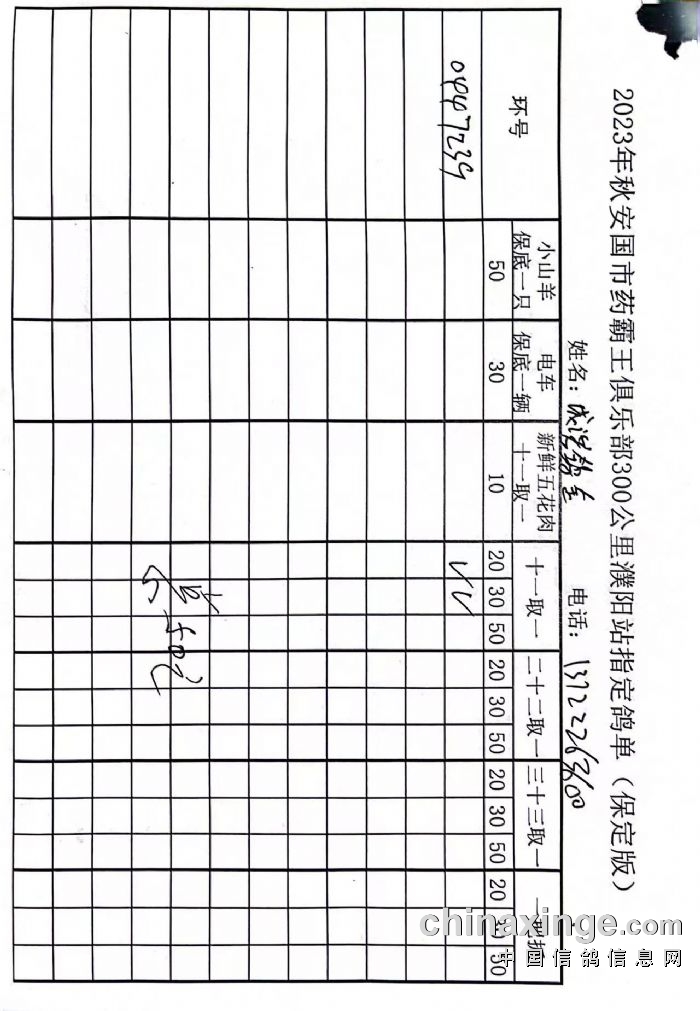 2023年秋安国市药霸王俱乐部300公里濮阳站指定鸽单（保定版）
姓名： 电话：13722263600
环号 小山羊 保底一只 电车 保底一辆 新鲜五花肉 十一取一 十一取一 二十二取一 三十三取一
50 30 10 20 30 50 20 30 50 20 30 50 20 50
0447239 √ √
共50元
chinaxinge.com
中国信鸽信息网